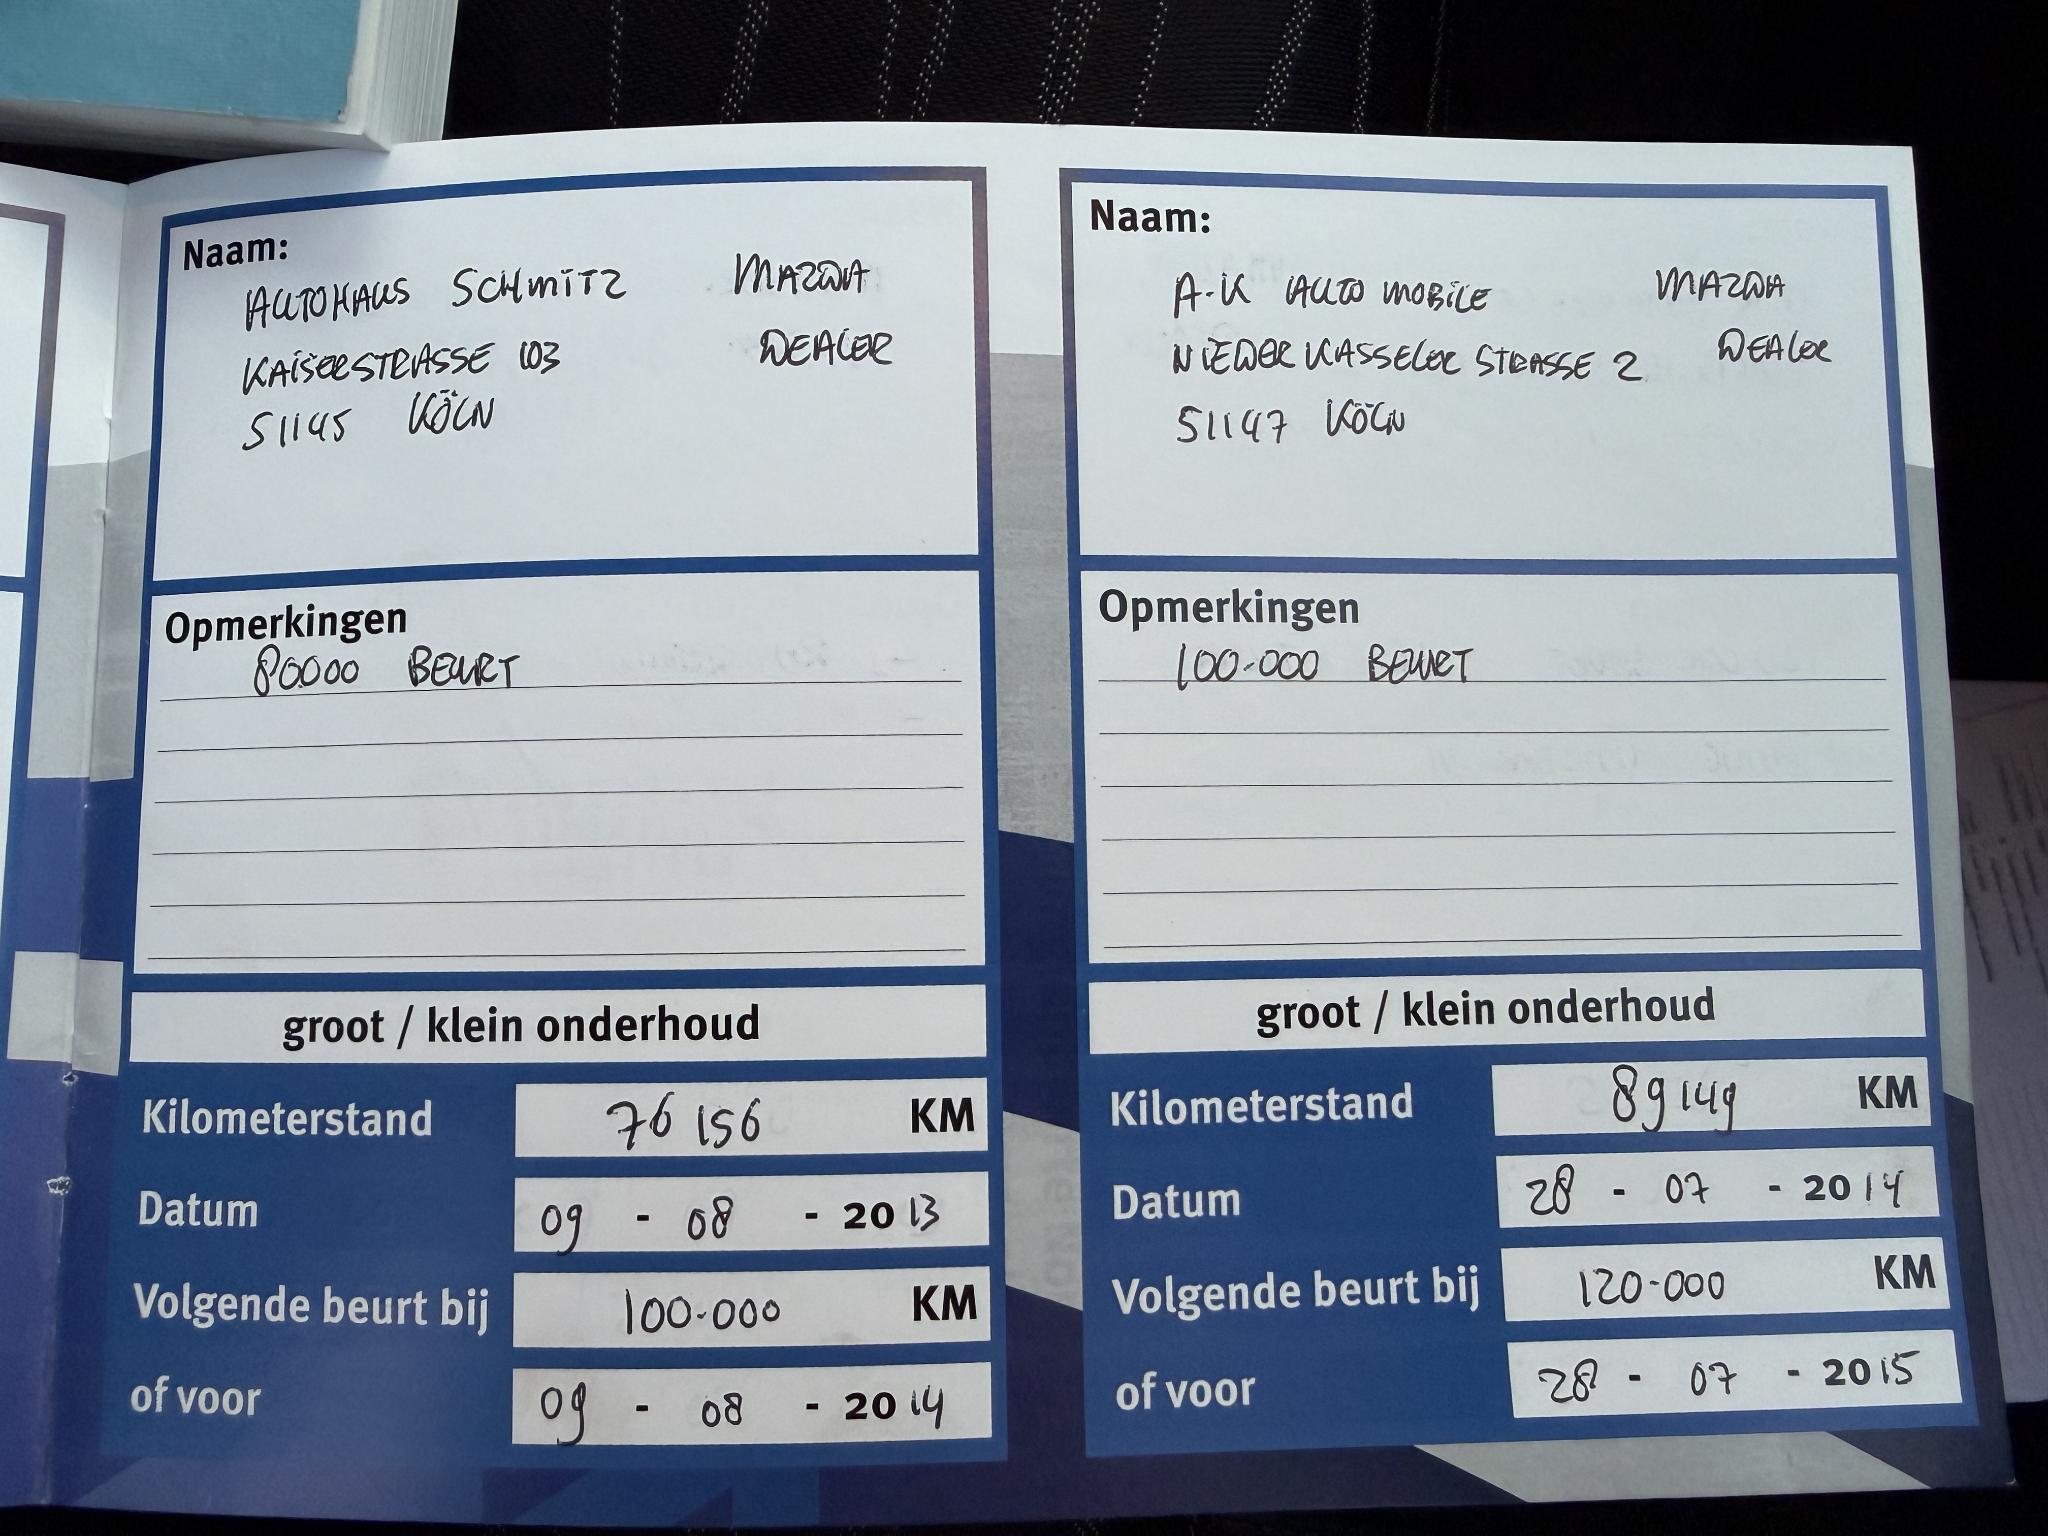 Naam:
AUTOHAUS SCHMITZ MAZDA
KAISERSTRASSE 103 DEALER
51145 KÖLN
Opmerkingen
80000 BEURT
groot / klein onderhoud
Kilometerstand 76156 KM
Datum 09 - 08 - 2013
Volgende beurt bij 100.000 KM
of voor 09 - 08 - 2014
Naam:
A-K AUTO MOBILE MAZDA
NIEDER KASSELER STRASSE 2 DEALER
51147 KÖLN
Opmerkingen
100.000 BEURT
groot / klein onderhoud
Kilometerstand 89149 KM
Datum 28 - 07 - 2014
Volgende beurt bij 120.000 KM
of voor 28 - 07 - 2015